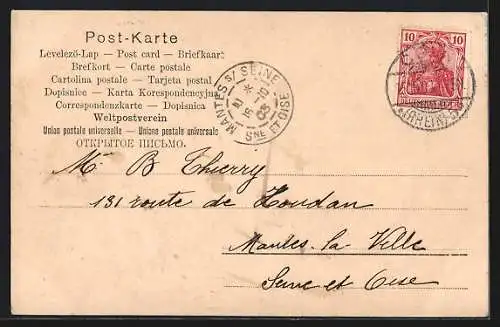 Post-Karte
Levelező-Lap — Post card — Briefkaart
Brefkort — Carte postale
Cartolina postale — Tarjeta postal
Dopisnice — Karta Korespondencyjna
Correspondenzkarte — Dopisnica
Weltpostverein
Union postale universelle — Unione postale universale
ОТКРЫТОЕ ПИСЬМО.
MANTES S/ SEINE
SNE ET OISE
10 10
(RHEIN)
M. B Thierry
131 route de Houdan
Mantes-la Ville
Seine et Oise